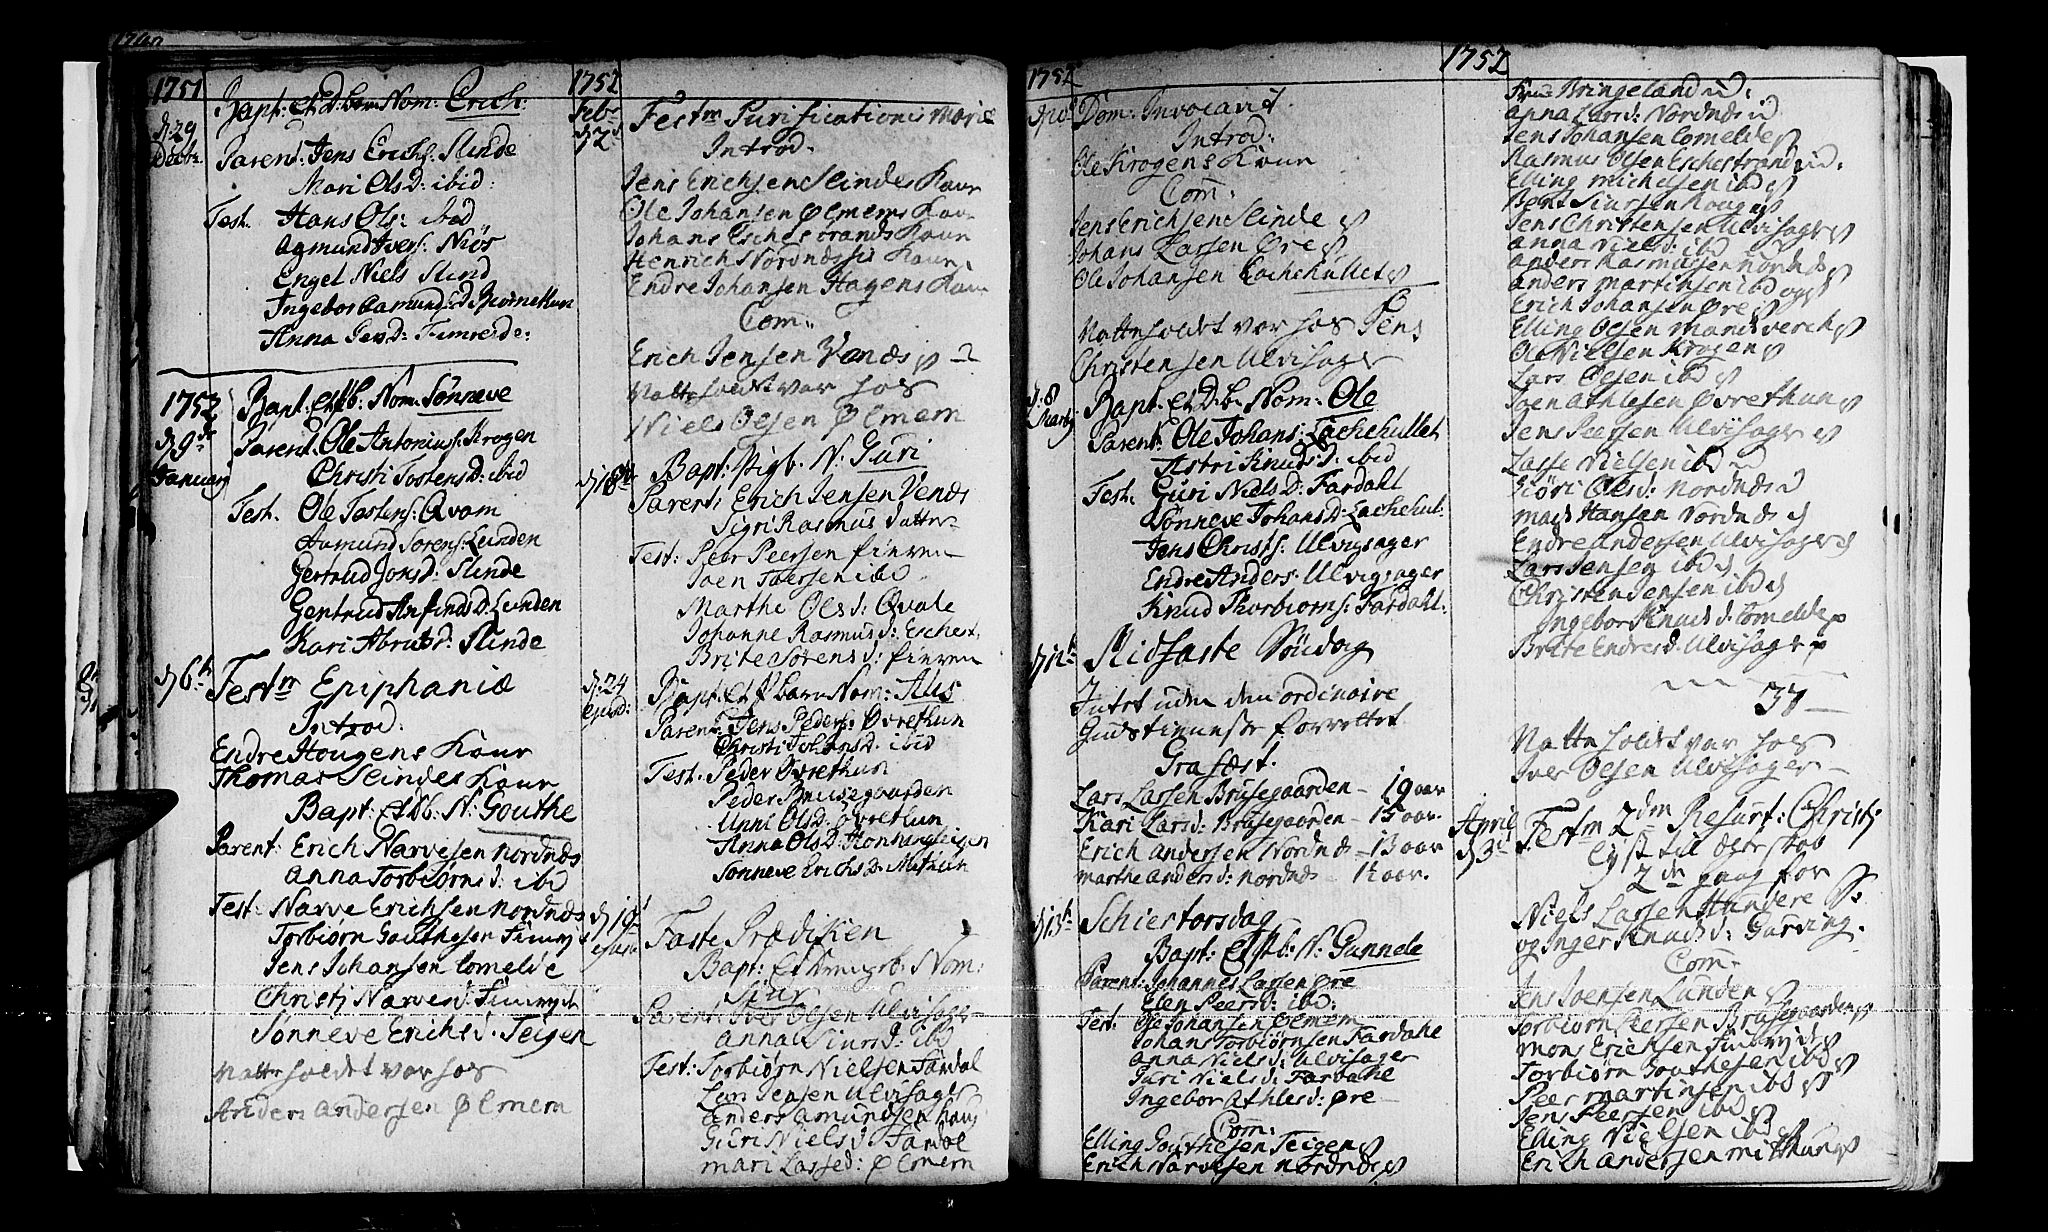 1751
d. 29
Decbr.
Bapt. et D.barn Nom: Erich:
Parens: Jens Erichs: Slinde
Mari Ols D: ibid:
Test. Hans Ols: ibid
Aamund Ivers: Niøs
Engel Niels Slind
Ingebor Aamunds D. Hun
Anna D:
1752
d 9de
Januarij
Bapt. et b. Nom. Sønneve
Parent. Ole Antonius: Krogen
Christi Tostens D: ibid
Test. Ole Tostens: Qvam
Aamund Sorens: Lunden
Gertrud Jonsd: Slinde
Gertrud Anfinds D. Lunden
Kari d: Slinde
d 6te
Festm Epiphaniæ
Introd:
Endre Hougens Kone
Thomas Slindes Kone
Bapt: et b: N: Gouthe
Parent: Erich Narvesen Nordnæs
Anna Torbiørnsd: ibd
Test: Narve Erichsen Nordnæs
Torbiørn Gouthesen
Jens Johansen Lomelde
Christj Narvesd:
Sønneve Erichsd. Teigen
Natteholdet var hos
Anders Andersen Ølmem
1752
Febr
d 2
Festm Purificationis Mariæ
Introd.
Jens Erichsen Slindes Kone
Ole Johansen Ølmems Kone
Johans Eschestrands Kone
Henrich Nordnæssis Kone
Endre Johansen Hagens Kone
Com:
Erich Jensen Venæs
Natteholdet var hos
Niels Olsen Ølmem
Bapt: Pigb. N. Guri
Parent: Erich Jensen Venæs
Sigri Rasmus datter
Test: Peer Peersen
Joen Iversen ibd
Marthe Olsd: Qvale
Johanne Rasmusd: Eschest.
Brite Sørensd:
d. 24
ejusd:
Bapt: et barn Nom: Aus
Parent: Jens Peders: Øvrethun
Christi Johans D. ibid
Test. Peder Øvrethun
Peder Brusegaarden
Unni Ols D: Øvrethun
Anna Ols D:
Sønneve Erichs D. Mithun
Faste Prædiken
Bapt: Et b: Nom:
Siur
Parent: Iver Olsen Ulvisager
Anna Siursd: ibd
Test: Torbiørn Nielsen Fardal
Jensen Ulvisager
Anders Amundsen Houg
Guri Nielsd. Fardal
Mari Lassed: Ølmem
1752
Dom: Invocavit.
Introd:
Ole Krogens Kone
Com:
Jens Erichsen Slinde
Johans Larsen Øre
Ole Johansen Lachehullet
Natteholdet var hos Jens
Christensen Ulvisager
d. 8
Martij
Bapt. Et D.b. Nom: Ole
Parent. Ole Johans: Lachehullet
Astri Knuds D: ibid
Test. Guri Niels D: Fardahl
Sønneve Johans D. Lachehul.
Jens Christs: Ulvigsager
Endre Anders. Ulvigsager
Knud Thorbiorns: Fardahl.
d 12te
Midfaste Søndag
Intet uden den ordinaire
Gudstieneste forrettet
Grafæst.
Lars Larsen Brusegaarden – 19 aar
Kari Larsd: Brusegaarden – 15 aar.
Erich Andersen Nordnæs – 13 aar
Marthe Andersd: Nordnæs – 1 aar.
Schiertorsdag
Bapt: Et b: N: Gunnele
Parent: Johannes Larsen Øre
Elen Peersd: ibd:
Test. Ole Johansen Ølmem
Johans Torbiørnsen Fardahl
Anna Nielsd: Ulvisager
Guri Nielsd: Fardahl
Ingebor Athlesd: Øre
Com:
Elling Gouthesen Teigen
Erich Narvesen Nordnæs
1752
Bringeland
Anna Larsd: Nordnæs
Jens Johansen Lomelde
Rasmus Olsen Eschestrand
Elling Michelsen ibd
Bent Siursen Houg
Jens Christensen Ulvisager
Anna Nielsd: ibd
Anders Rasmussen Nordnæs
Anders Martinsen ibd
Erich Johansen Øre
Elling Olsen
Ole Nielsen Krogen
Lars Olsen ibd
Joen Athlesen Øvrethun
Jens Peersen Ulvisager
Lasse Nielsen ibd
Kiøri Olsd: Nordnæs
Mads Hansen Nordnæs
Endre Andersen Ulvisager
Lars Jensen ibd
Christen Jensen ibd
Ingebor Knudsd. Lomelde
Brite Endresd. Ulvisager
37
Natteholdet var hos
Iver Olsen Ulvisager
April
d 3
Festm 2dm Resurr: Christj
Lyst til ægteskab
2den gang for
Niels Larsen Hundere S:
og Inger Knudsd:
Com:
Jens Joensen Lunden
Torbiørn Peersen Brusegaarden
Mons Erichsen
Torbiørn Gouthesen ibd
Peer Martinsen ibd
Jens Peersen ibd
Elling Nielsen ibd
Erich Andersen Mitthun